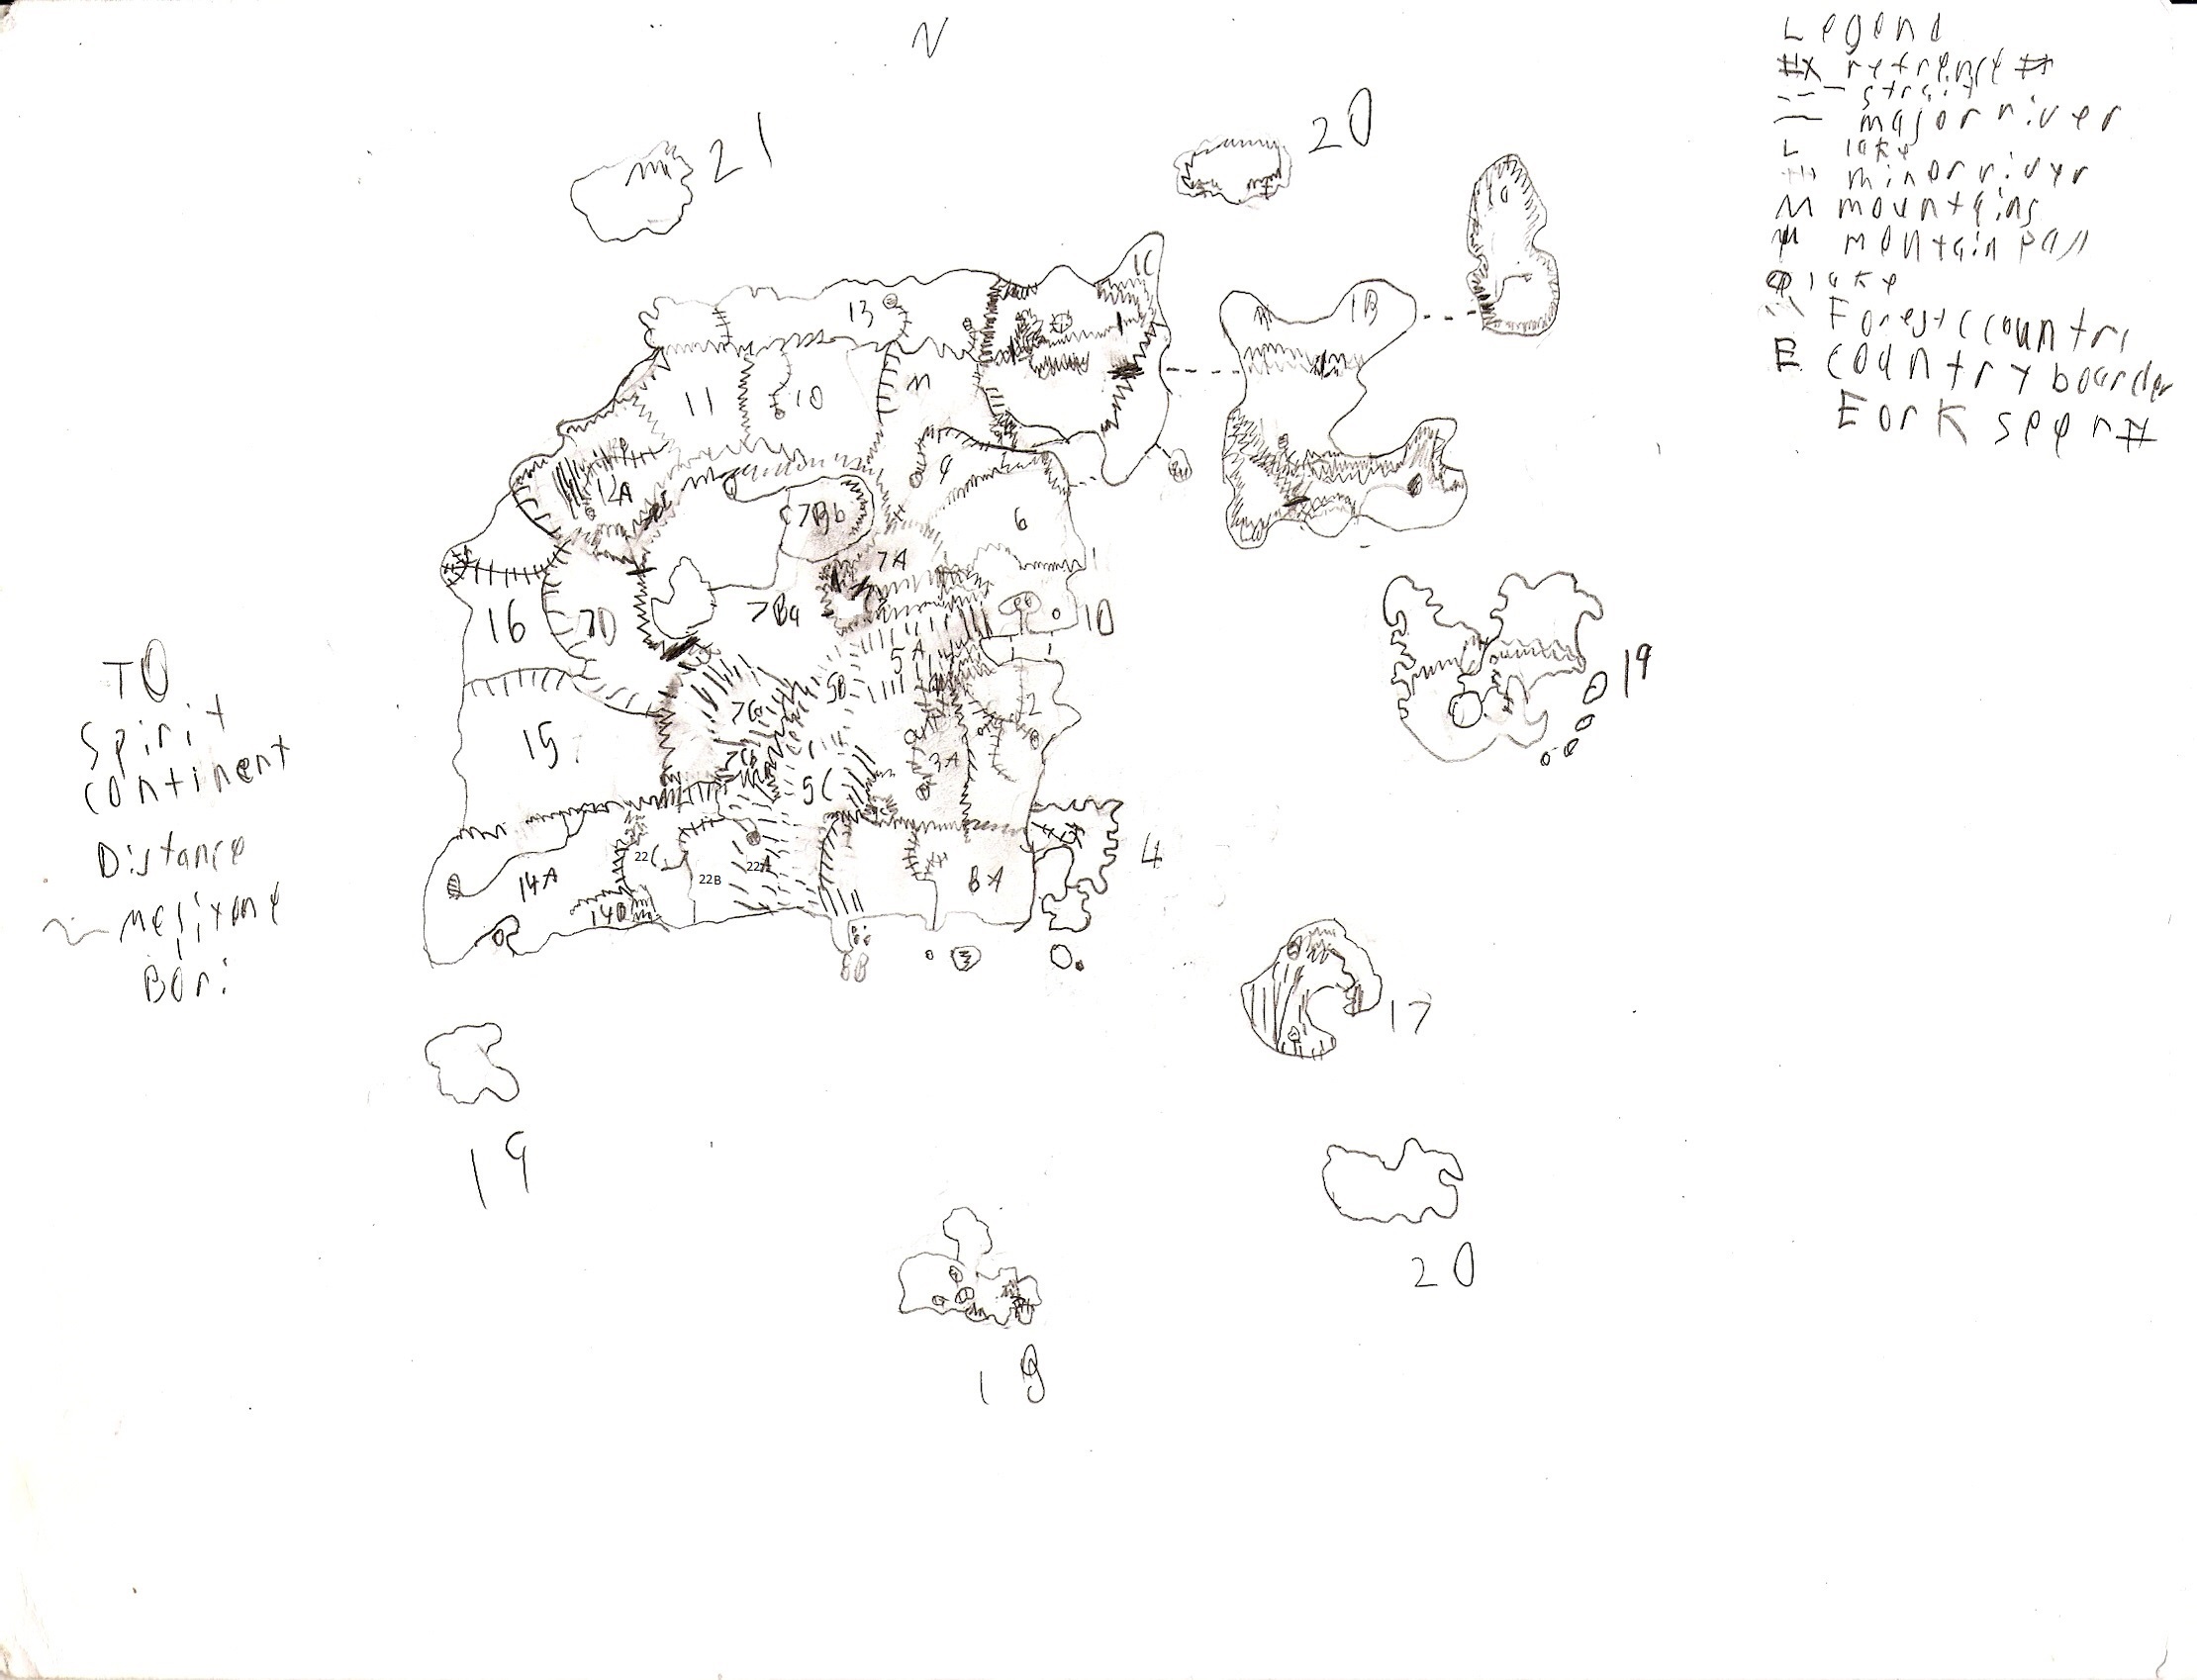 N
21
20
Legend
#x refrence #
strait
major river
L lake
minor river
M mountains
mountain pass
lake
Forest country
E country boarder
Fork spear #
1C
1B
13
1
11
10
12A
9
7Bb
6
7A
16
7D
7Ba
1D
5A
5B
2
19
15
7C
5C
3A
4
22C
22B
22A
14A
14B
8A
8B
17
19
20
18
TO
Spirit
continent
Distance
Bori